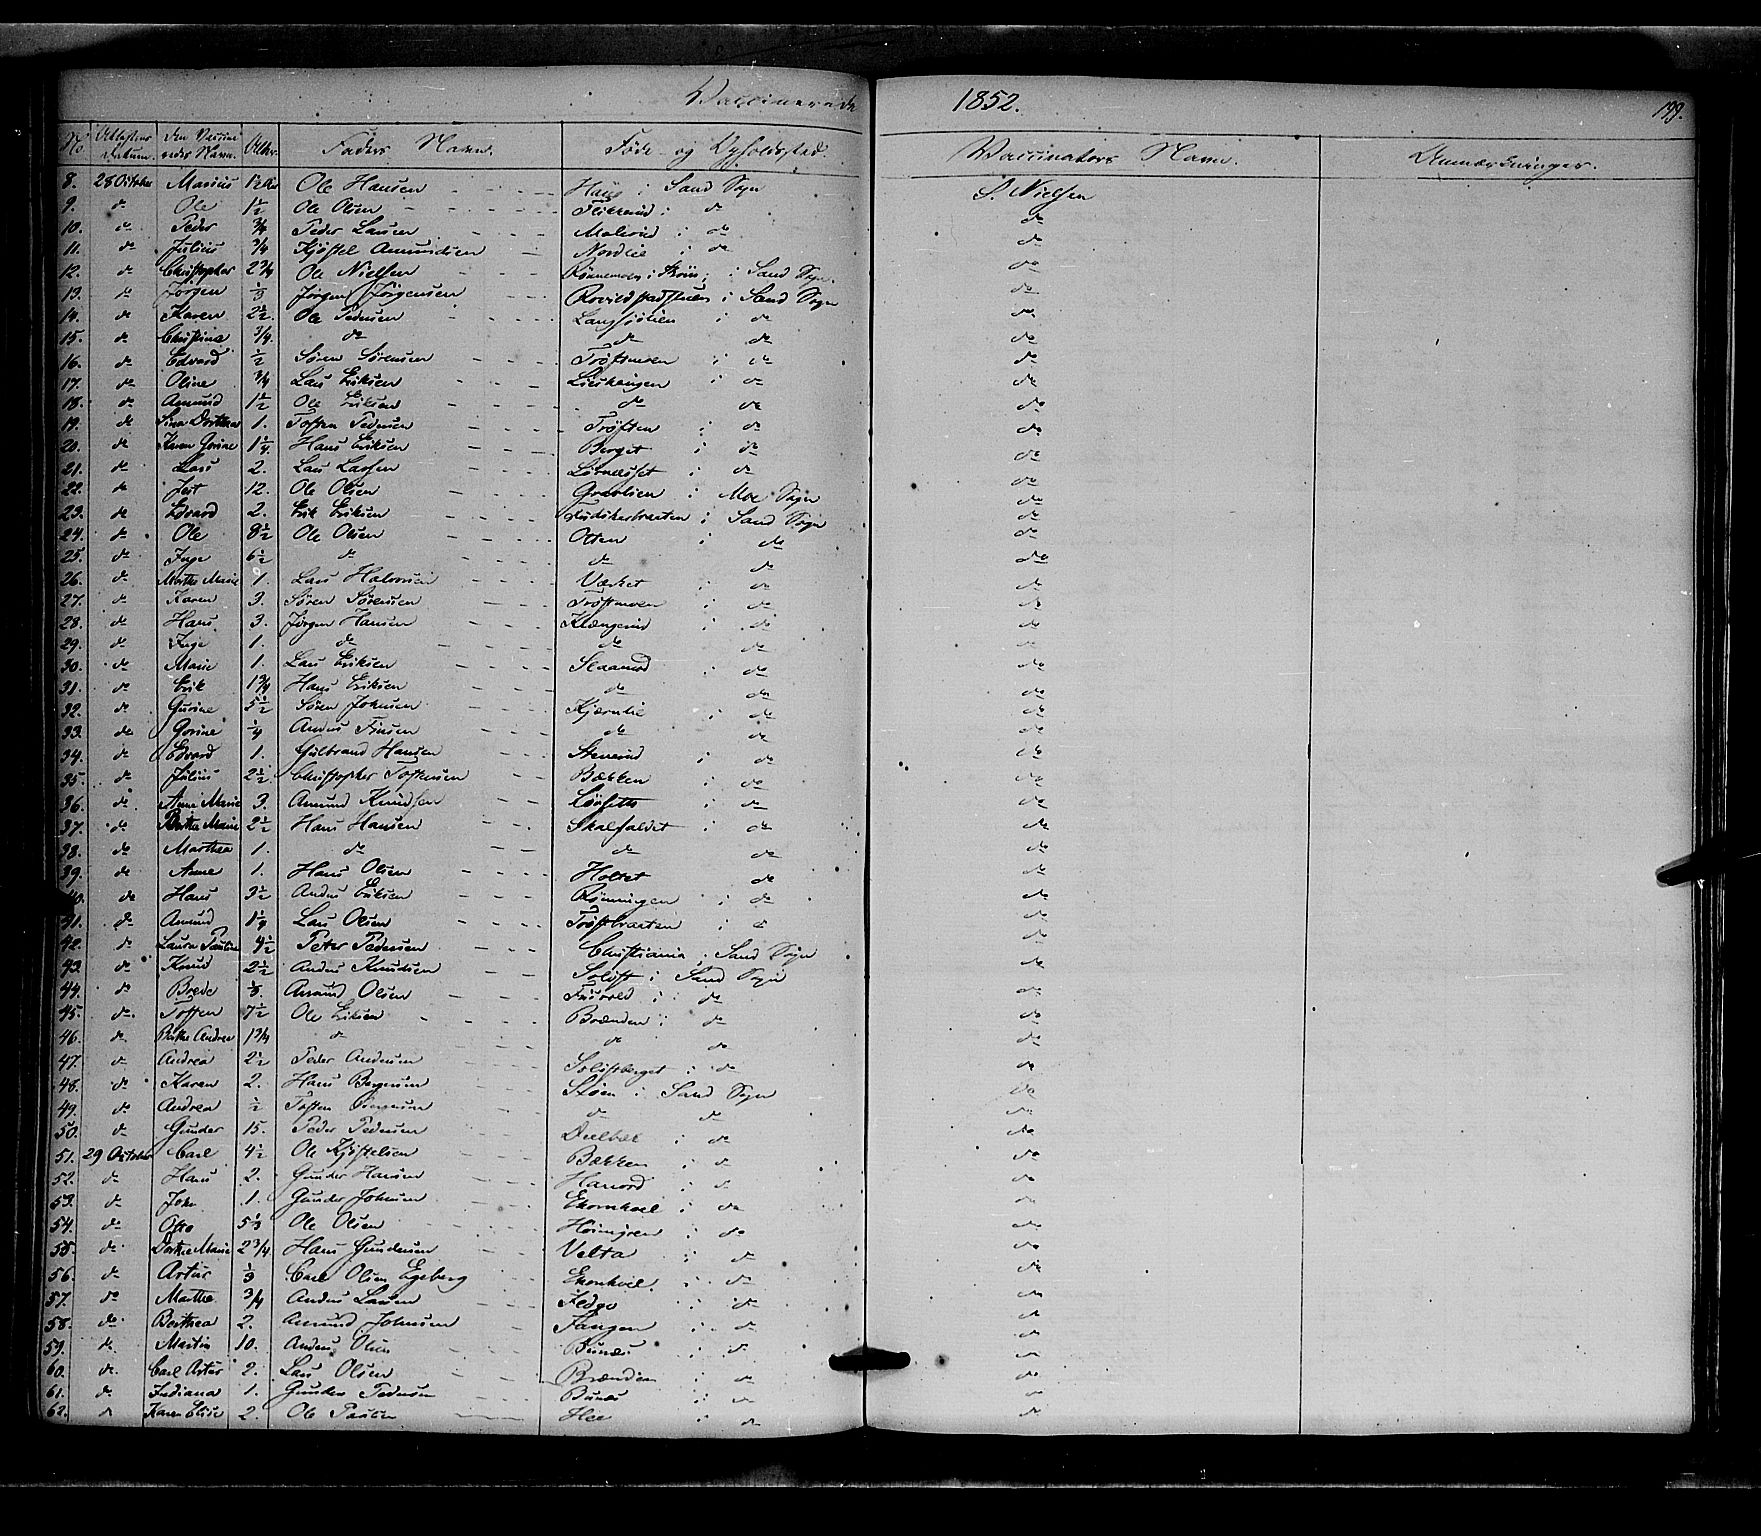 Vaccinerede 1852. 199.
No Attestens Datum. den Vaccineredes Navn. Alder. Faders Navn. Føde- og Opholdssted. Vaccinators Navn. Anmærkninger.
8. 28 October Marius 1½ Aar Ole Hansen i Sand Sogn S. Nielsen
9. do Ole 1½ Ole Olsen i do do
10. do Peder ¾ Peder Larsen i do do
11. do Julius ¾ Kjøstel Amundsen Nordlie i do do
12. do Christopher 2¾ Ole Nielsen i Sand Sogn do
13. do Jørgen ⅓ Jørgen Jørgensen i Sand Sogn do
14. do Karen 2½ Ole Pedersen i do do
15. do Christina ¾ do do do do
16. do Edvard ½ Søren Sørensen Trøftmoen i do do
17. do Oline ¾ Lars Eriksen i do do
18. do Amund 1½ Ole Eriksen do do do
19. do Sina Dorthea 1. Tosten Pedersen Trøften i do do
20. do Karen Gorine 1¼ Hans Eriksen Berget i do do
21. do Lars 2. Lars Larsen i do do
22. do 12. Ole Olsen i Moe Sogn do
23. do Edvard 2. Erik Eriksen i Sand Sogn do
24. do Ole 8½ Ole Olsen i do do
25. do Inge 6½ do do do do
26. do Marthe Marie 1. Lars Halvorsen Værket i do do
27. do Karen 3. Søren Sørensen Trøftmoen i do do
28. do Hans 3. Jørgen Hansen Klængerud i do do
29. do Inge 1. do do do do
30. do Marie 1. Lars Eriksen i do do
31. do Erik 1¾ Hans Eriksen do do do
32. do Gurine 5½ Søren Johnsen Kjærnlie i do do
33. do Gorine ¼ Anders Finsen do do do
34. do Edvard 1. Gulbrand Hansen Stenerud i do do
35. do Julius 2½ Christopher Tostensen Bækken i do do
36. do Anne Marie 3. Amund Knudsen i do do
37. do Berthe Marie 2½ Hans Hansen Skalfaldet i do do
38. do Marthea 1. do do do do
39. do Anne 1. Hans Olsen Holtet do do
40. do Hans 3½ Anders Eriksen Rønningen i do do
41. do Amund 1¼ Lars Olsen Trøftbraaten i do do
42. do Laura Pauline 4½ Peter Pedersen Christiania i Sand Sogn do
43. do Knud 2½ Anders Knudsen i Sand Sogn do
44. do Brede ⅓. Amund Olsen i do do
45. do Tosten 7½ Ole Eriksen Brænden i do do
46. do Berthe Andrea 1¾ do do do do
47. do Andrea 2½ Peder Andersen i do do
48. do Karen 2. Hans Børgersen Støen i Sand Sogn do
49. do Andrea ½ Tosten do do do
50. do Gunder 15. Peder Pedersen Deelbæk i do do
51. 29 October Carl 4½ Ole Kjøstelsen Bækken i do do
52. do Hans 2. Gunder Hansen i do do
53. do John 1. Gunder Johnsen Ekornhoel i do do
54. do Otto 5⅓ Ole Olsen i do do
55. do Dorthe Marie 2¾ Hans Gundersen Velta i do do
56. do Artur ⅓ Carl Olsen Egeberg Ekornhoel i do do
57. do Marthe ¾ Anders Larsen i do do
58. do Berthea 2. Amund Johnsen Tangen i do do
59. do Martin 10. Anders Olsen Bunæs i do do
60. do Carl Artur 2. Lars Olsen Brænden i do do
61. do Indiana 1. Gunder Pedersen Bunæs i do do
62. do Karen Elise 2. Ole Paulsen i do do